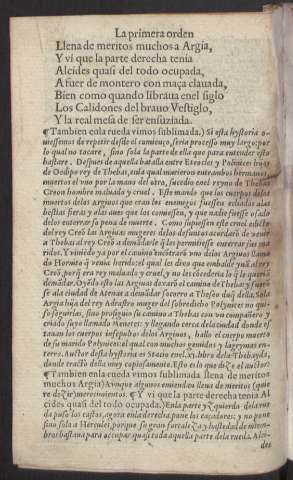 La primera orden
Llena de meritos muchos a Argia,
Y vi que la parte derecha tenia
Alcides quasi del todo ocupada,
A fuer de montero con maça clauada,
Bien como quando libraua enel siglo
Los Calidones del brauo Vestiglo,
Y la real mesa de ser ensuziada.
¶Tambien enla rueda vimos sublimada.) Si esta hystoria o-
uiessemos de repetir desde el comienço, seria processo muy largo: por
lo qual no tocare, sino sola la parte de ella que para entender esto
bastare. Despues de aquella batalla entre Eteocles y Polinices hijos
de Oedipo rey de Thebas, enla qual murieron entrambos hermanos
muertos el vno por la mano del otro, sucedio enel reyno de Thebas
Creon hombre maluado y cruel. Este mando que los cuerpos delos
muertos delos Argiuos que eran los enemigos fuessen echados alas
bestias fieras y alas aues que los comiessen, y que nadie fuesse osado
delos enterrar so pena de muerte. Como supiessen este cruel edicto
del rey Creõ las Argiuas mugeres delos defuntos acordarõ de yr
a Thebas al rey Creõ a demãdarle q̃ les permitiesse enterrar sus ma
ridos. Y viniẽdo ya por el camino encõtrarõ vno delos Argiuos llama
do Hornito q̃ venia herido: el qual les dixo que embalde yuã al rey
Creõ, porq̃ era rey maluado y cruel, y no les cõcederia lo q̃ le queriã
demãdar. Oyẽdo esto las Argiuas dexarõ el camino de Thebas y fuerõ
se ala ciudad de Atenas a demãdar socorro a Theseo duq̃ della. Sola
Argia hija del rey Adrastro muger del sobredicho Polynices no qui-
so seguirlas, sino prosiguio su camino a Thebas con vn compañero y
criado suyo llamado Menetes: y llegando cerca dela ciudad donde es
tauan los cuerpos insepultos delos Argiuos, hallo el cuerpo muerto
de su marido Polynices: al qual con muchos gemidos y lagrymas en-
terro. Auctor desta hystoria es Stacio enel .xij. libro dela Thebayda,
donde tracto della muy copiosamente. Esto es lo que dize el auctor:
¶Tambien enla rueda vimos sublimada llena de meritos
muchos Argia) Aunque algunos emiendan llena de meritos (quie
re dezir) merescimientos. ¶Y vi que la parte derecha tenia Al
cides quasi del todo ocupada.) Enla parte yzquierda dela rue
da puso los castos, agora enla derecha pone los caçadores: y no pone
sino sola a Hercules, porque su gran fortaleza y bastedad de miem-
bros bastaua para ocupar quasi toda aquella parte dela rueda. Alci-
des